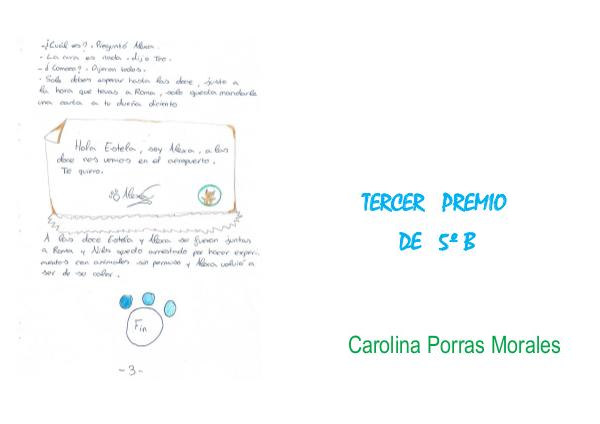 -¿Cuál es?. Preguntó Alexa.
- La cura es nada. dijo Teo.
- ¿Comooo?. Dijeron todos.
- Solo debes esperar hasta las doce, justo a
la hora que te vas a Roma, solo queda mandarle
una carta a tu dueña diciento
Hola Estela, soy Alexa, a las
doce nos vemos en el aeropuerto.
Te quiero.
Alexa
A las doce Estela y Alexa se fueron juntas
a Roma y Niko quedo arrestado por hacer experi-
mentos con animales sin permiso y Alexa volvió a
ser de su color.
Fin
-3-
TERCER PREMIO
DE 5º B
Carolina Porras Morales